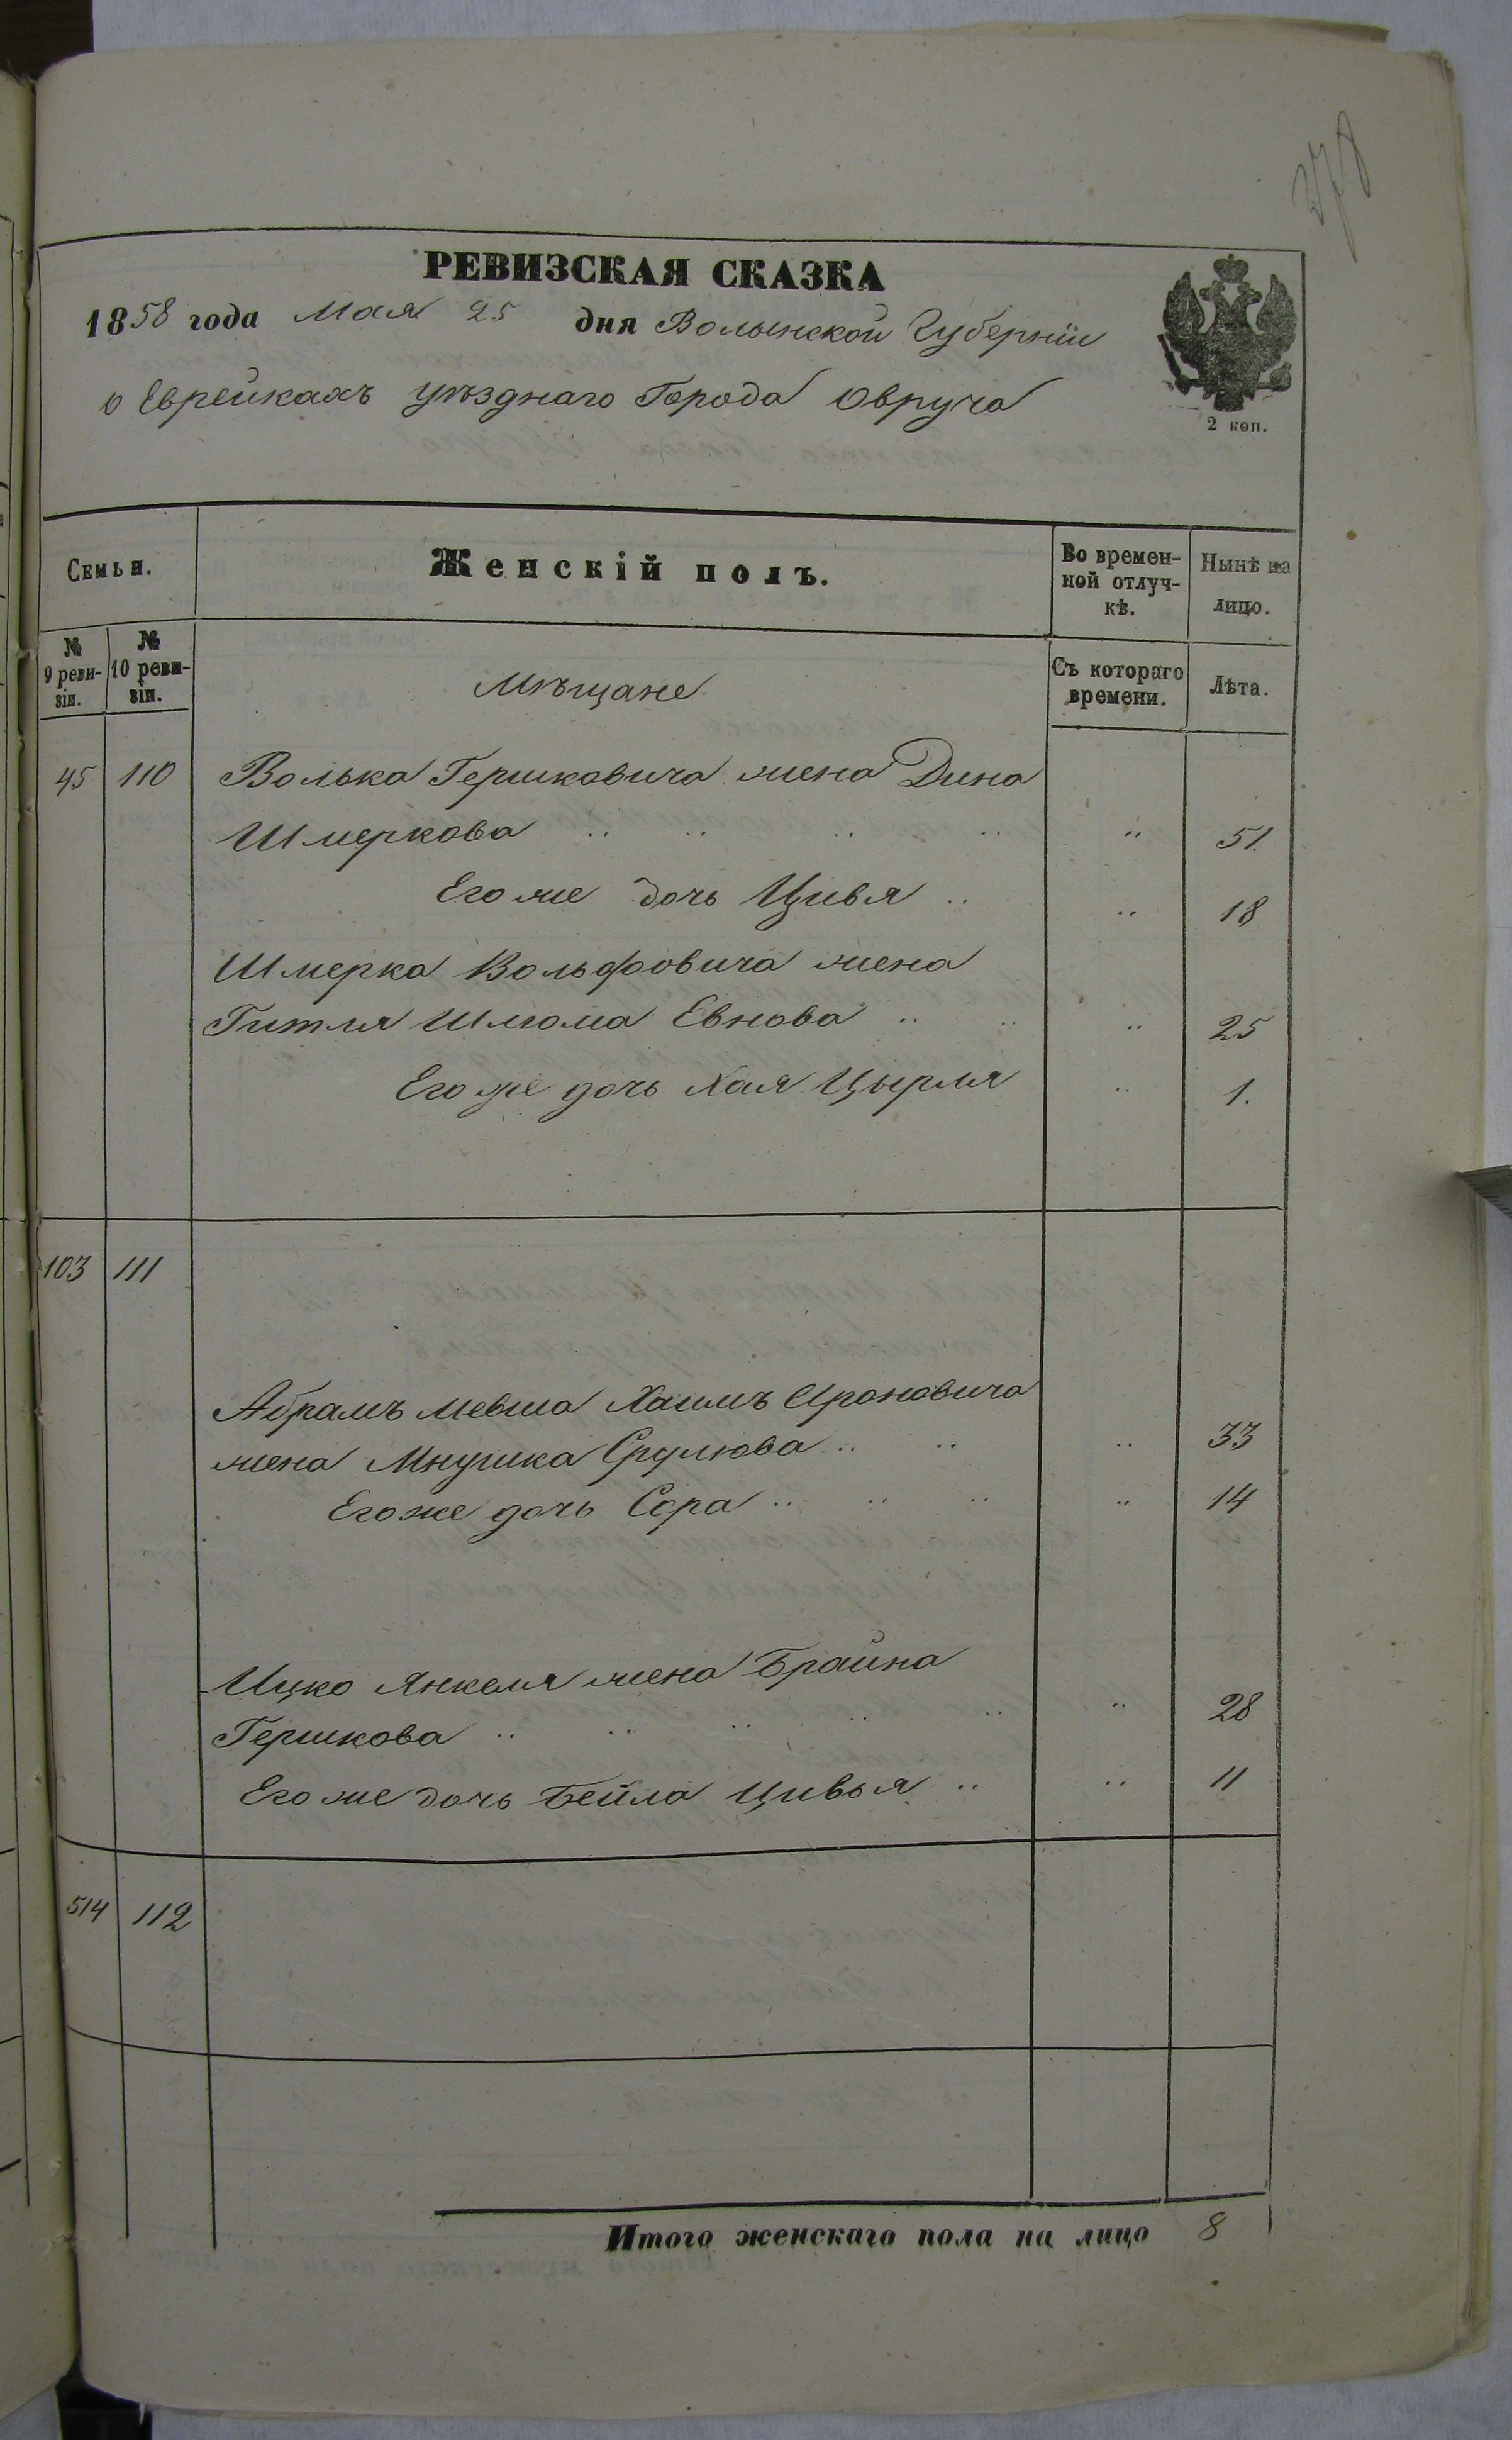 278
РЕВИЗСКАЯ СКАЗКА
1858 года Мая 25 дня Волынской Губерніи
о Еврейкахъ уѣзднаго Города Овруча
2 коп.
Семьи.
Женскій полъ.
Во времен-
ной отлуч-
кѣ.
Нынѣ на
лицо.
№
9 реви-
зіи.
№
10 реви-
зіи.
Съ котораго
времени.
Лѣта.
Мѣщане
45 110 Волька Гершковича жена Дина
Шмеркова .. .. .. .. .. 51.
Его же дочь Цивя .. .. 18
Шмерка Вольфовича жена
Гитля Шлиома Евнова .. .. .. 25
Его же дочь Хая Цырля .. 1.
103 111
Абрамъ Мевша Хаимъ Ароновича
жена Мнушка Срулюва .. .. .. 33
Его же дочь Сора .. .. .. .. 14
Ицко Янкеля жена Брайна
Гершкова .. .. .. .. .. .. 28
Его же дочь Бейла Цивья .. .. 11
514 112
Итого женскаго пола на лицо 8